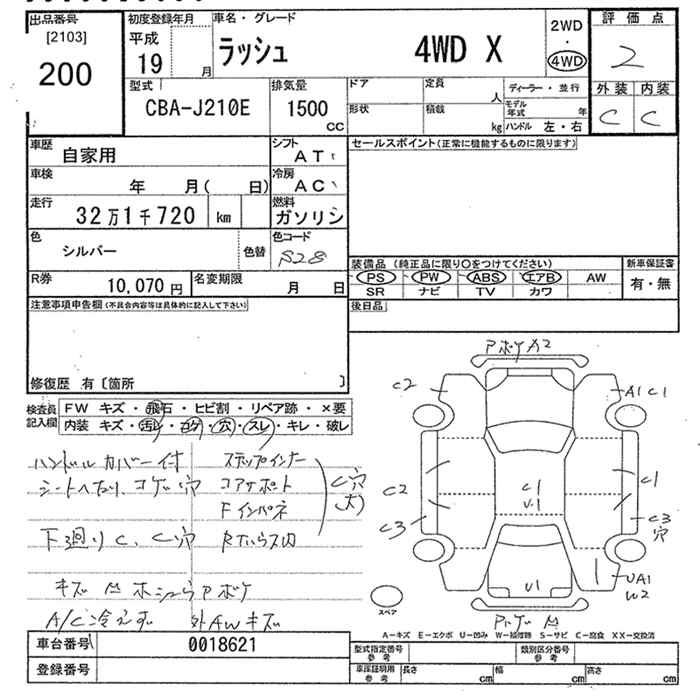 出品番号
[2103]
200
初度登録年月
平成
19 月
車名・グレード
ラッシュ 4WD X
2WD
・
4WD
評価点
2
外装 内装
C C
型式
CBA-J210E
排気量
1500
CC
ドア
形状
定員
人
積載
kg
ディーラー・並行
モデル
年式 年
ハンドル 左・右
車歴
自家用
シフト
AT
車検
年 月( 日)
冷房
AC
走行
32万1千720 km
燃料
ガソリン
色
シルバー
色替
色コード
S28
R券
10,070円
名変期限
月 日
セールスポイント(正常に機能するものに限ります)
装備品 (純正品に限り○をつけてください)
新車保証書
PS PW ABS エアB AW
SR ナビ TV カワ
有・無
後日品
注意事項申告欄(不具合内容等は具体的に記入して下さい)
修復歴 有〔箇所 〕
検査員
記入欄
FW キズ・飛石・ヒビ割・リペア跡・×要
内装 キズ・汚レ・コゲ・穴・スレ・キレ・破レ
ハンドルカバー付
シートヘタリ、コゲ穴
下廻りC、C穴
ステップインナー
コアサポート
Fインパネ
C穴
大
A/C冷えず
外AWキズ
C2
A1 C1
C2
C3
C1
U1
C1
C3
穴
U1
UA1
W2
スペア
A-キズ E-エクボ U-凹み W-補修跡 S-サビ C-腐食 XX-交換済
車台番号
0018621
登録番号
型式指定番号
参考
類別区分番号
参考
車庫証明用
参考
長さ cm
幅 cm
高さ cm